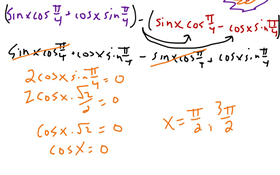 (sinx cos π/4 + cosx sin π/4) - (sinx cos π/4 - cosx sin π/4)
sinx cos π/4 + cosx sin π/4 - sinx cos π/4 + cosx sin π/4
2cosx sin π/4 = 0
2cosx · √2/2 = 0
cosx · √2 = 0
cosx = 0
x = π/2, 3π/2